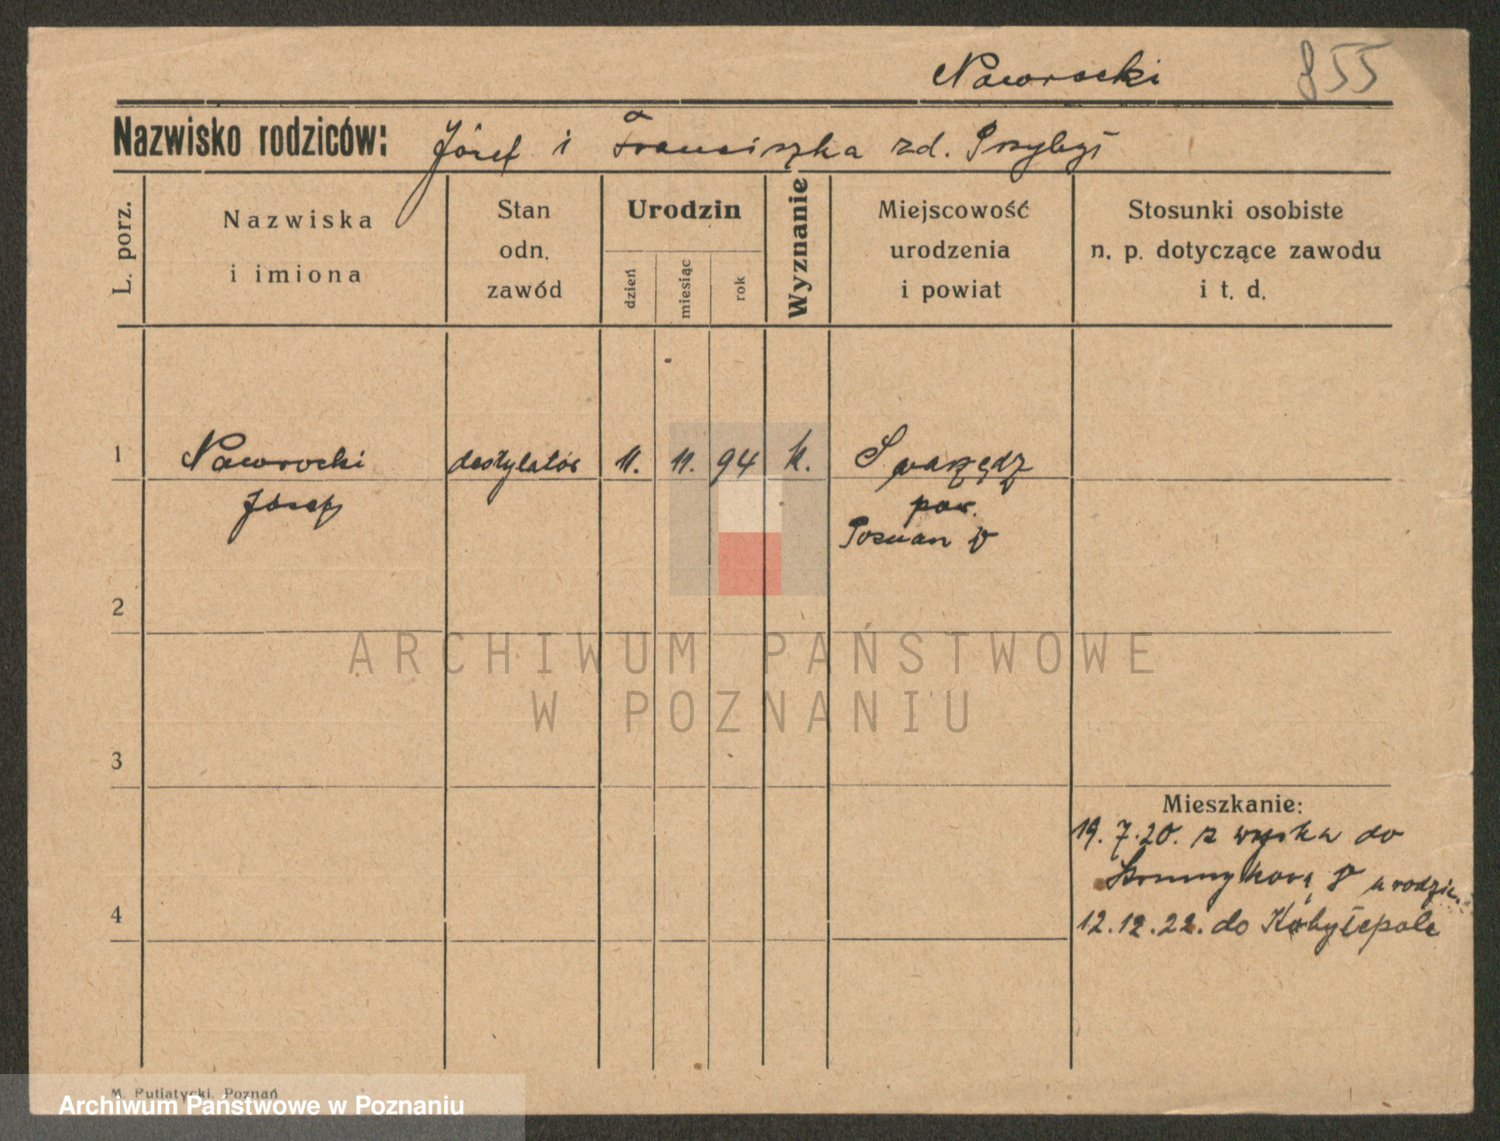 Nawrocki 855
Nazwisko rodziców: Józef i Franciszka zd. Przybył
L. porz.
Nazwiska
i imiona
Stan
odn.
zawód
Urodzin
dzień
miesiąc
rok
Wyznanie
Miejscowość
urodzenia
i powiat
Stosunki osobiste
n. p. dotyczące zawodu
i t. d.
1 Nawrocki destylator 11. 11. 94 k. Swarzędz
Józef pow.
Poznań
2
ARCHIWUM PAŃSTWOWE
W POZNANIU
3
Mieszkanie:
19.7.20. z wojska do
u rodzic.
4
12.12.22. do Kobylepole
M. Putiatycki, Poznań
Archiwum Państwowe w Poznaniu